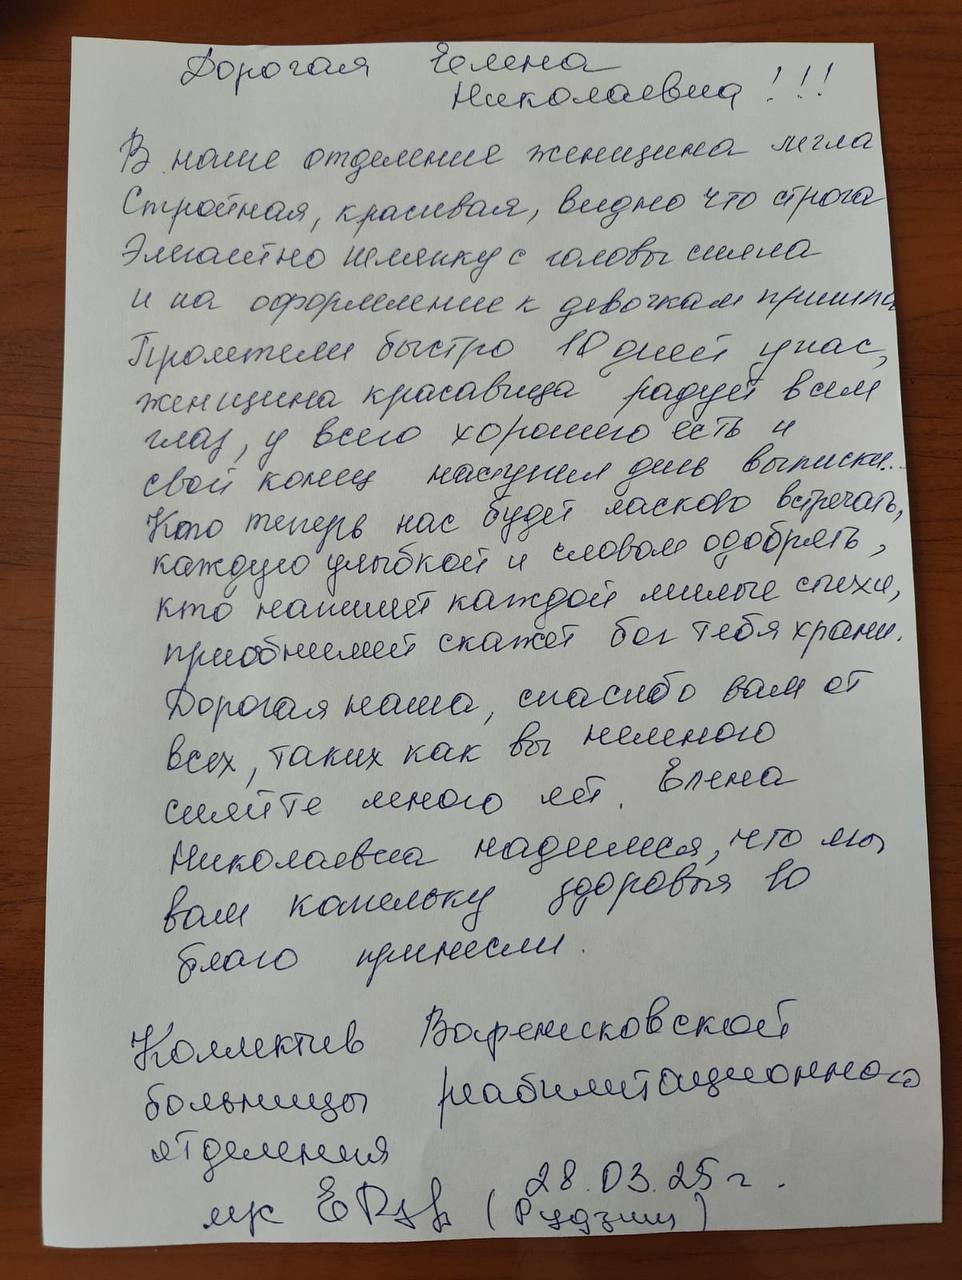 Дорогая Елена
Николаевна!!!
В наше отделение женщина легла
Стройная, красивая, видно что строга
Элегантно шляпку с головы сняла
и на оформление к девочкам пришла
Пролетели быстро 10 дней у нас,
женщина красавица радует всем
глаз, у всего хорошего есть и
свой конец наступил день выписки..
Кто теперь нас будет ласково встречать,
каждую улыбкой и словом одобрять,
кто напишет каждой милые стихи,
приобнимет скажет бог тебя храни.
Дорогая наша, спасибо вам от
всех, таких как вы немного
сияйте много лет. Елена
Николаевна надеемся, что мы
вам капельку здоровья во
благо принесли.
Коллектив Варениковской
больницы реабилитационного
отделения
28.03.25 г.
м/с (Рудзиш)